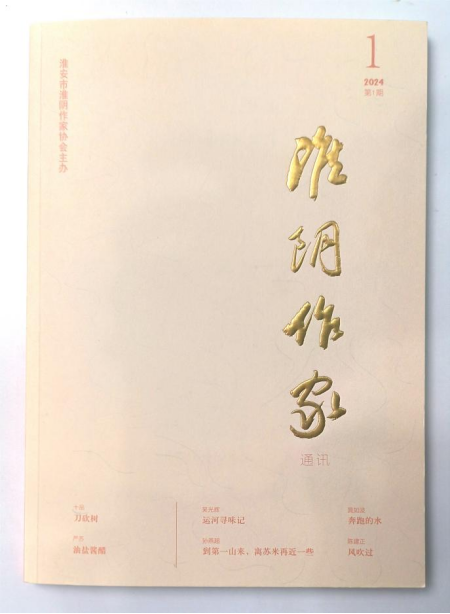 淮安市淮阴作家协会主办
1
2024
第1期
淮阴作家
通讯
刀砍树
油盐酱醋
运河寻味记
到第一山来，离苏米再近一些
奔跑的水
风吹过